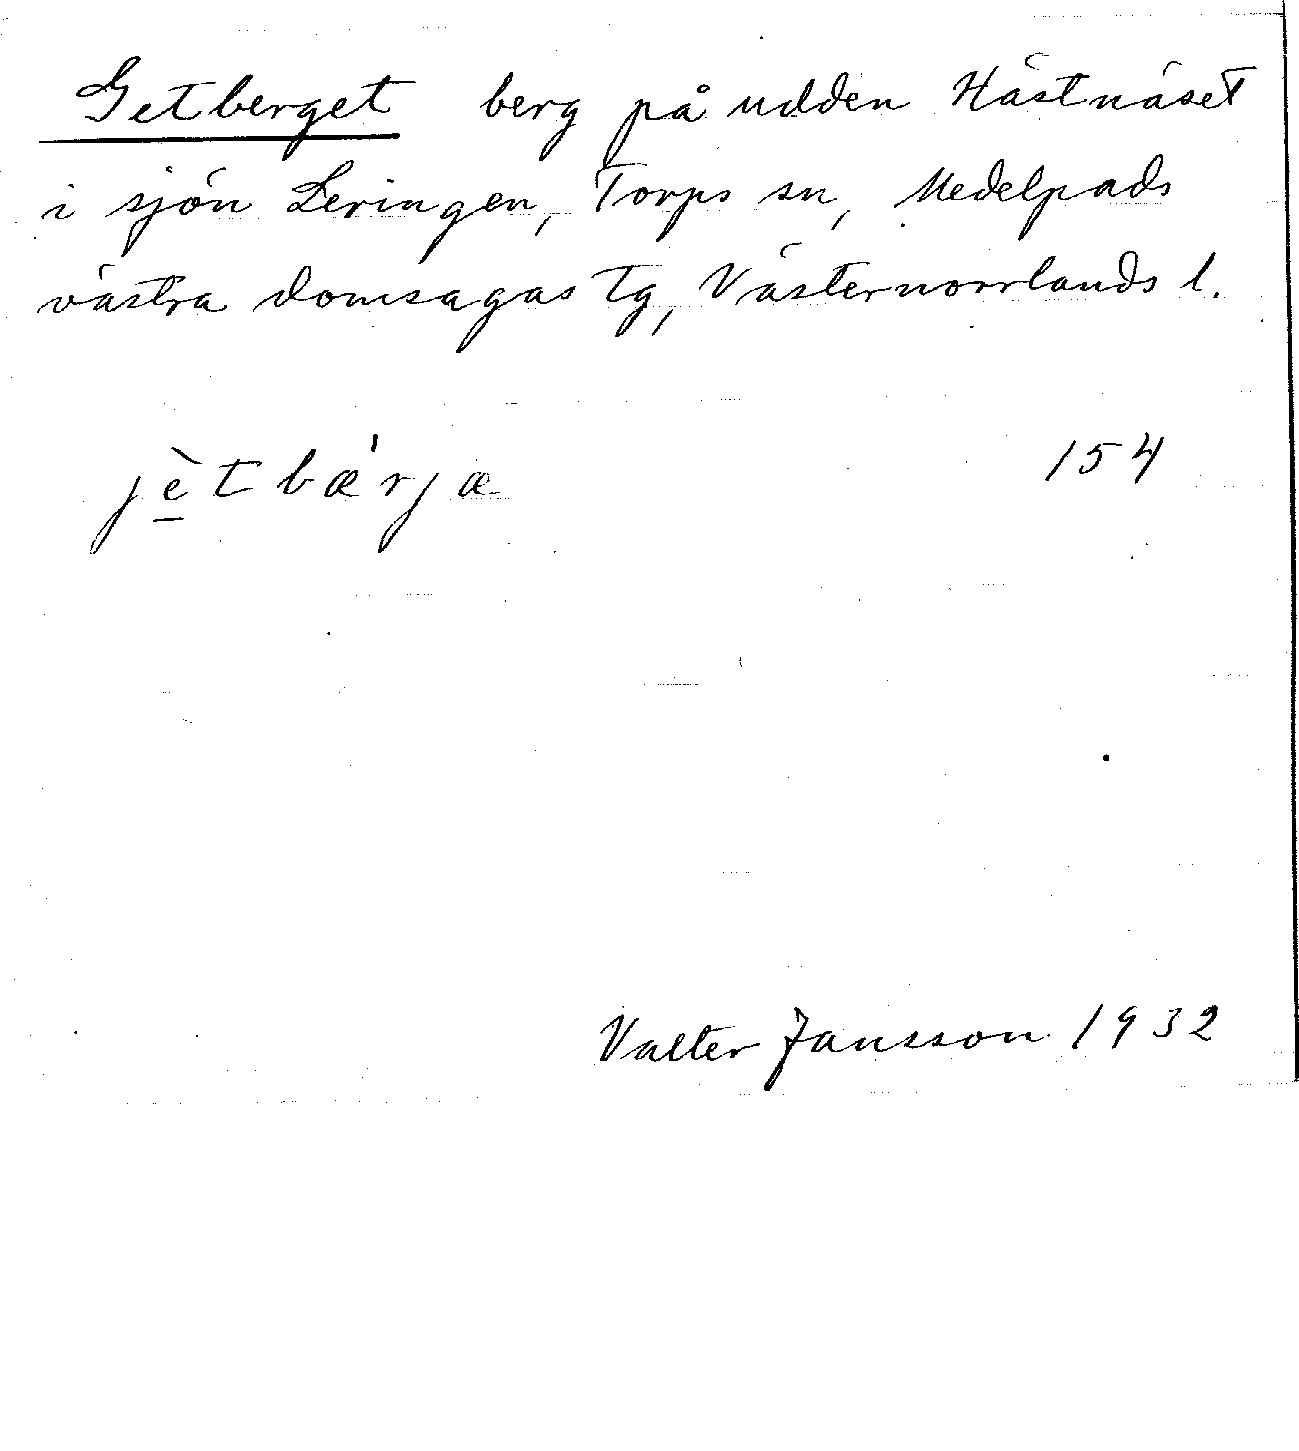 Getberget berg på udden Hästnäset
i sjön Leringen, Torps sn, Medelpads
västra domsagas Tg, Västernorrlands l.
jè̱tbæ'rjæ 154
Valter Jansson 1932